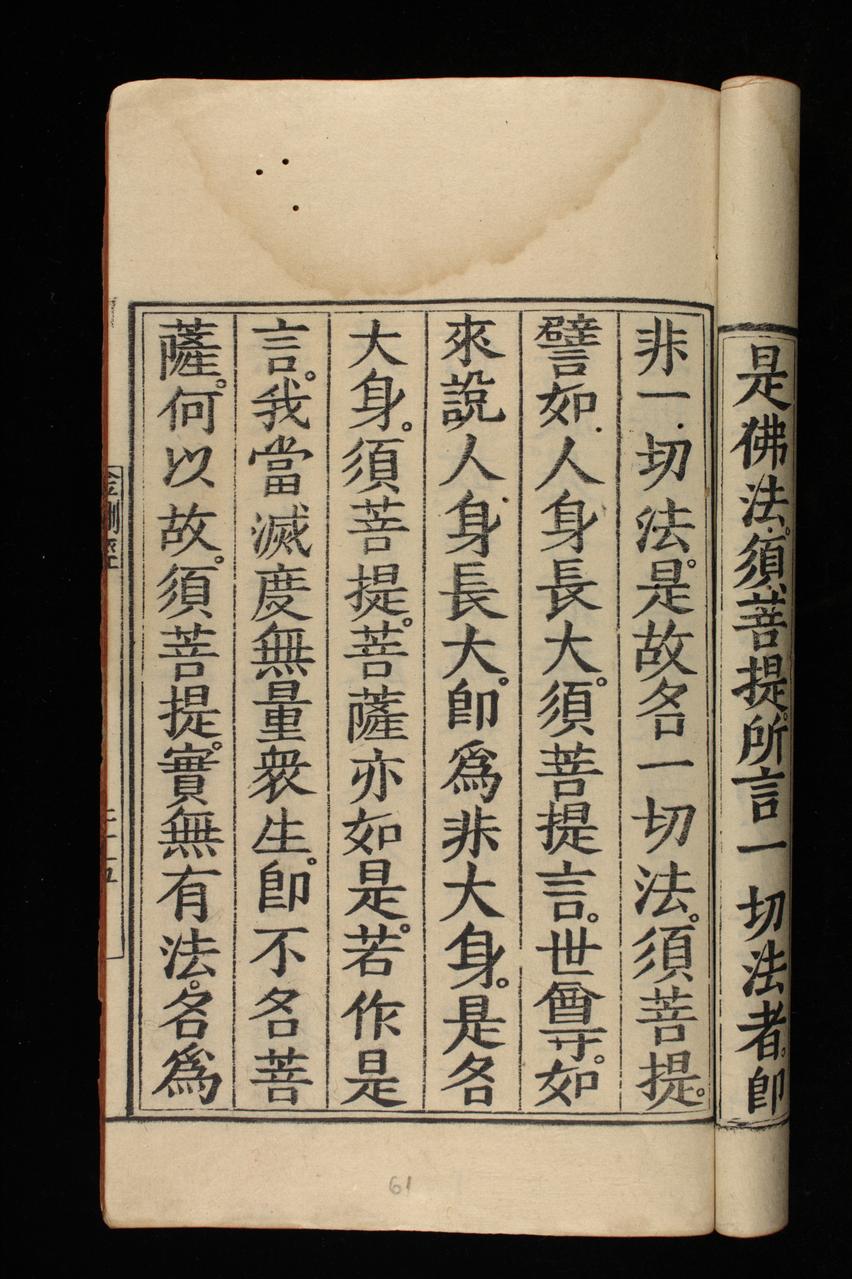 是佛法。須菩提。所言一切法者。卽
非一切法。是故名一切法。須菩提。
譬如人身長大。須菩提言。世尊。如
來說人身長大。卽爲非大身。是名
大身。須菩提。菩薩亦如是。若作是
言。我當滅度無量衆生。卽不名菩
薩。何以故。須菩提。實無有法。名爲
金剛經
61